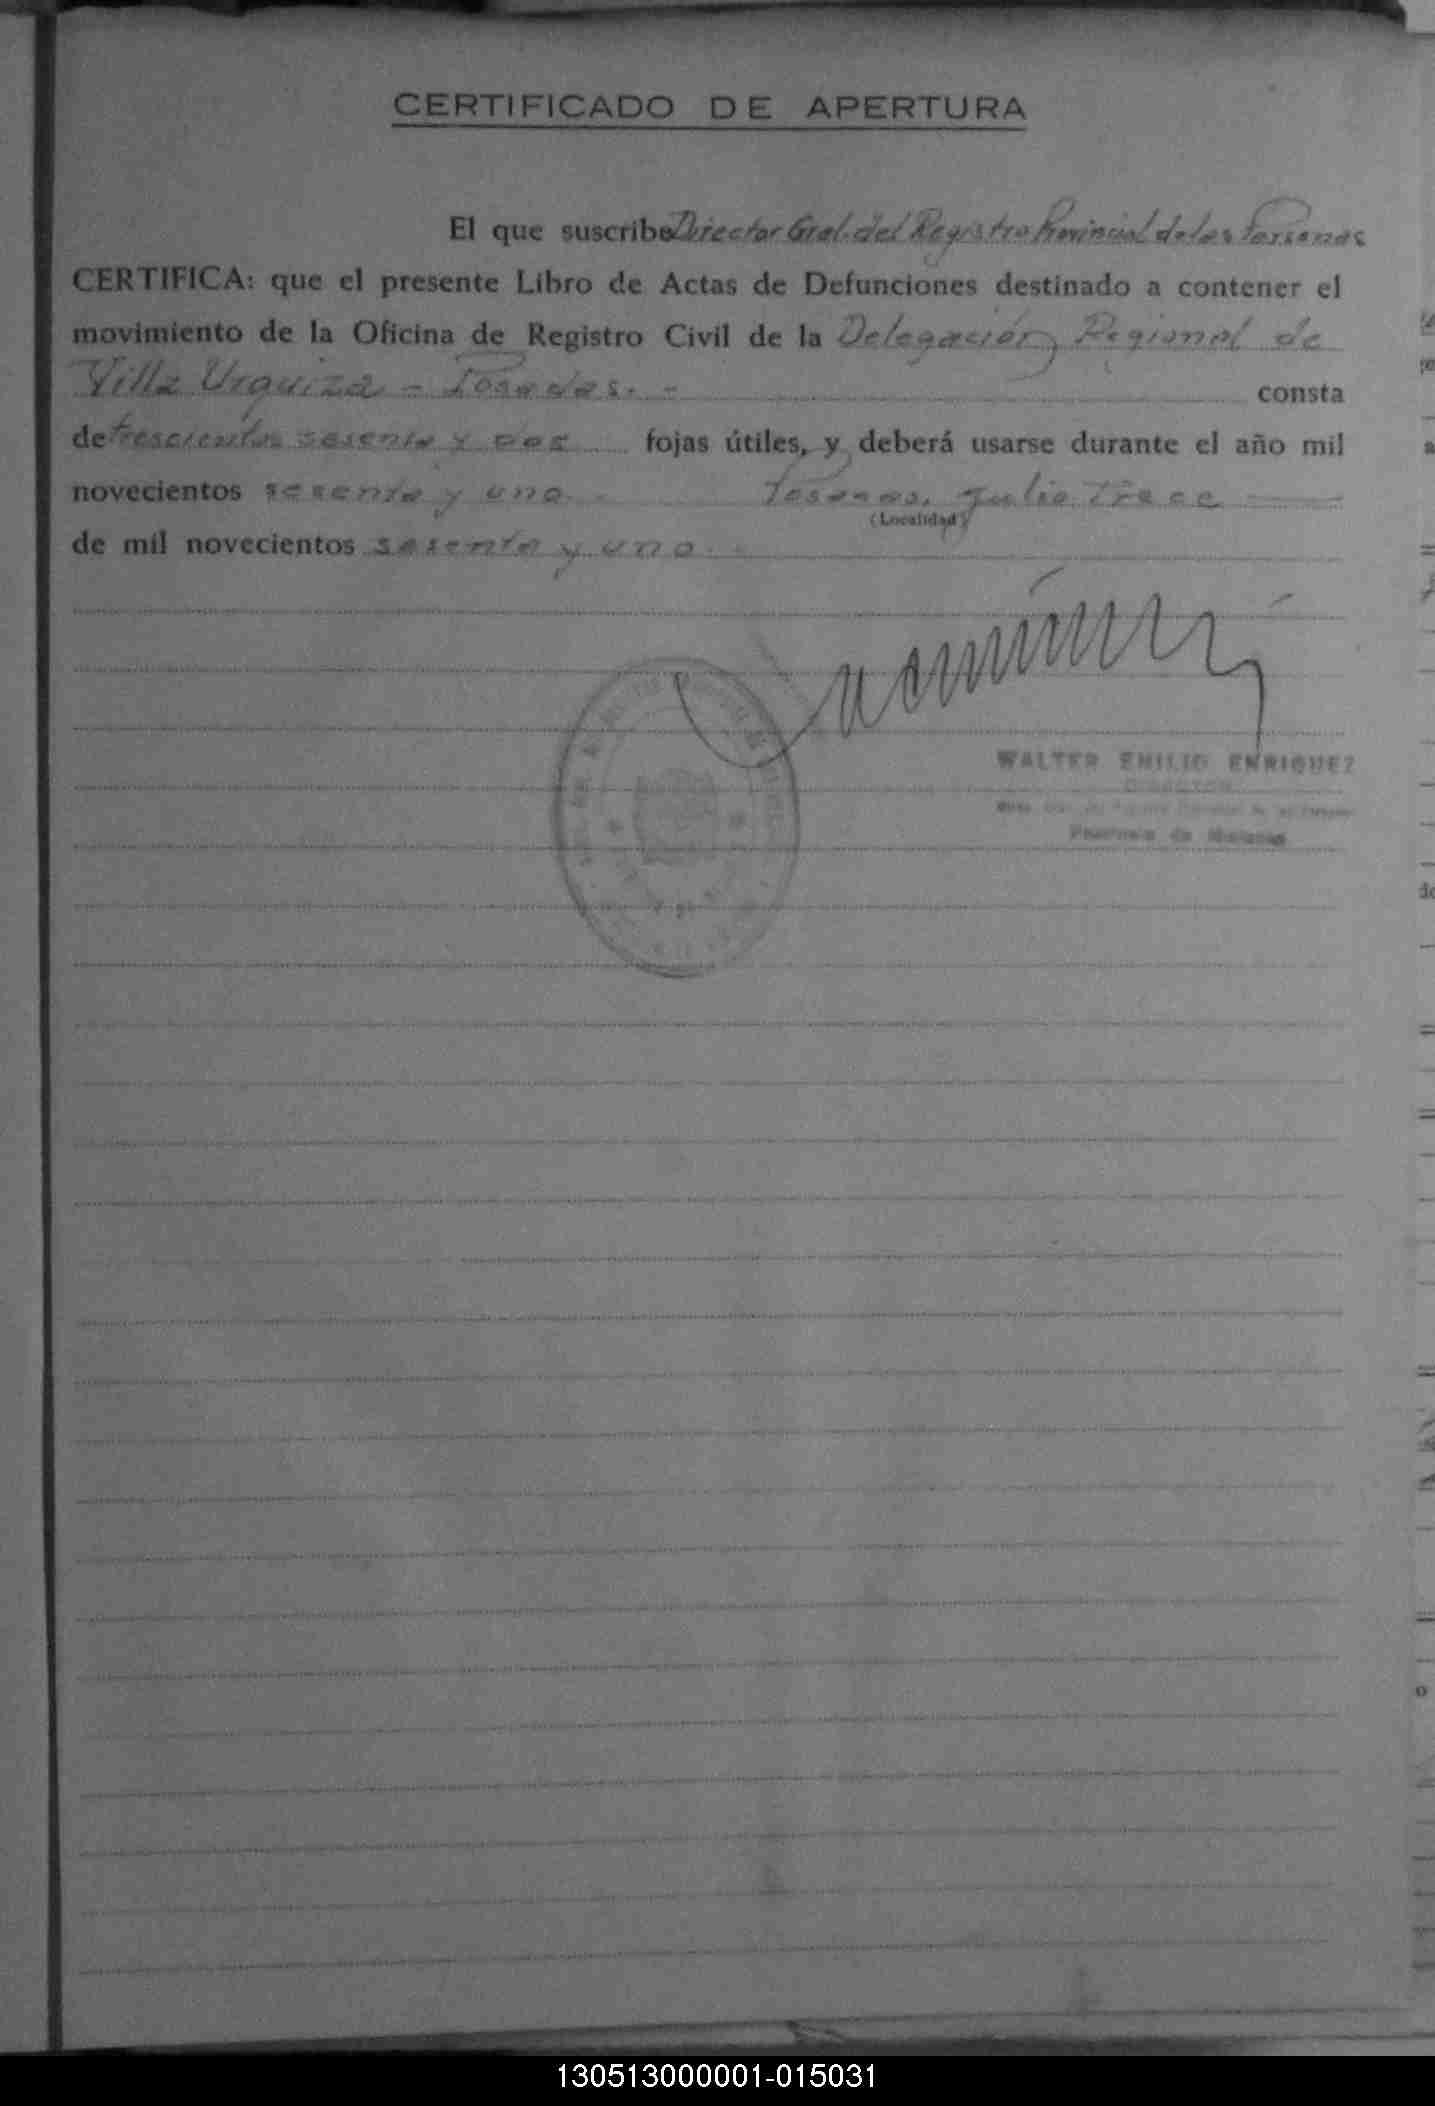 CERTIFICADO DE APERTURA
El que suscribe Director Gral. del Registro Provincial de las Personas
CERTIFICA: que el presente Libro de Actas de Defunciones destinado a contener el
movimiento de la Oficina de Registro Civil de la Delegación Regional de
Villa Urquiza - Posadas. - consta
de trescientos sesenta y dos fojas útiles, y deberá usarse durante el año mil
novecientos sesenta y uno. Posadas, Julio Trece
(Localidad)
de mil novecientos sesenta y uno.
WALTER EMILIO ENRIQUEZ
DIRECTOR
Provincia de Misiones
130513000001-015031